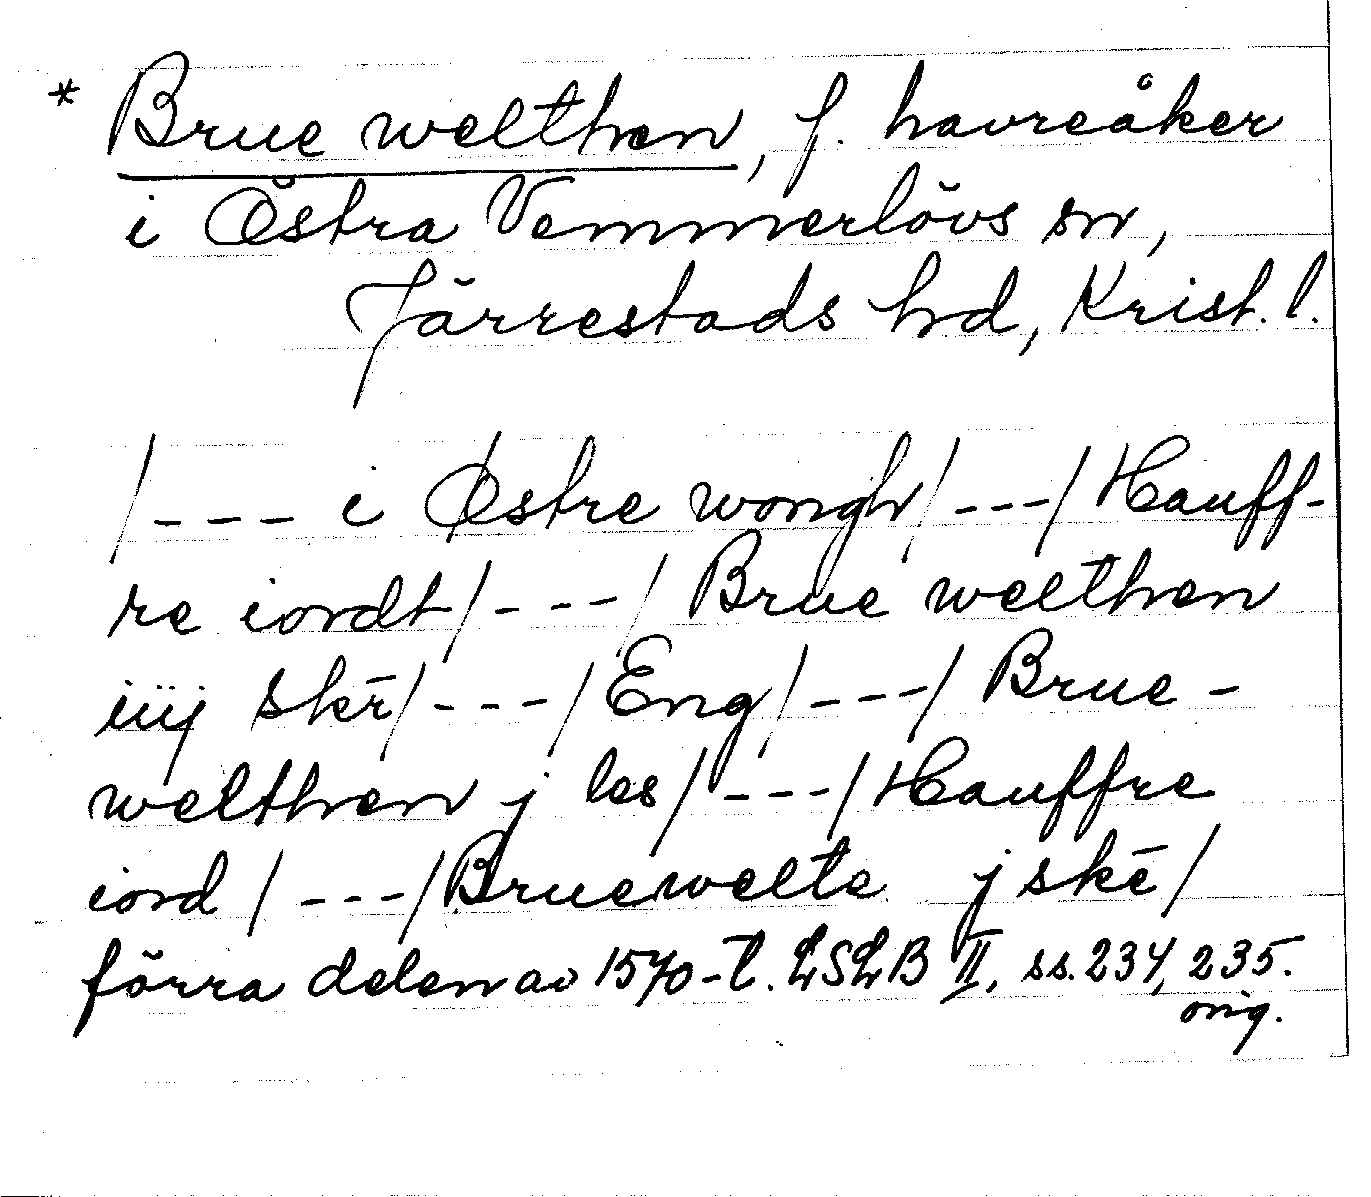 * Brue welthen, f. havreåker
i Östra Vemmerlövs sn,
Järrestads hd, Krist. l.
/--- i Østre wongh/---/Hauff-
re iordt/---/Brue welthen
iiij skē/---/Eng/---/Brue-
welthen j les/---/Hauffre
iord/---/Bruewelte j skē/
förra delen av 1570-t. LSLB II, ss. 234, 235.
orig.